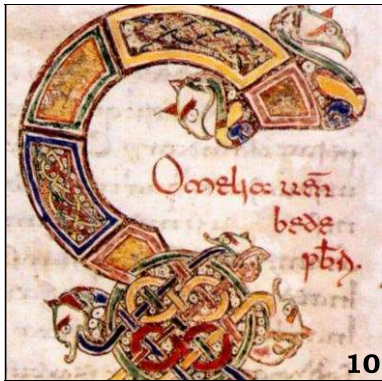 Omelia uen̄
bede
pb̄ri.
10